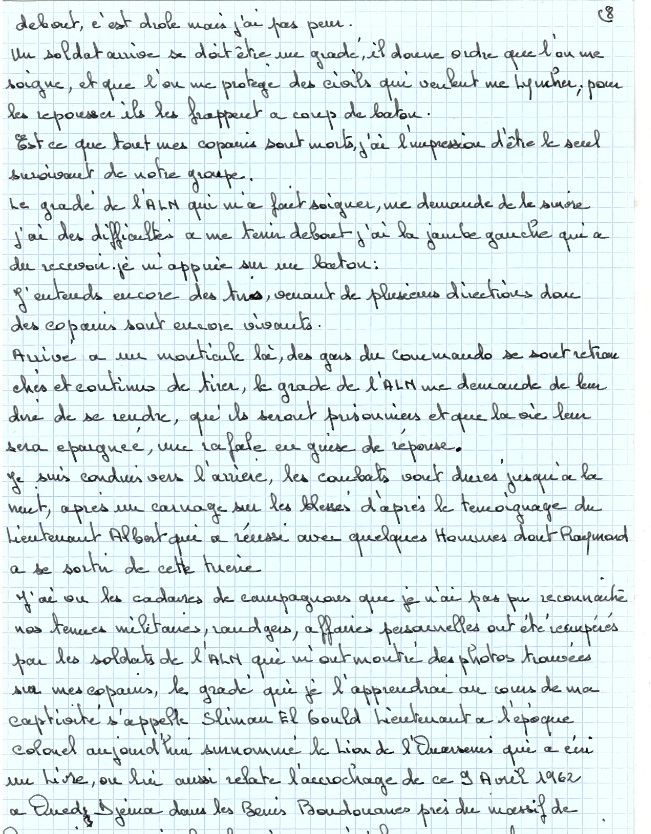 8
debout, c'est drole mais j'ai pas peur.
Un soldat arrive se doit être un gradé, il donne ordre que l'on me
soigne, et que l'on me protege des civils qui veulent me Lyncher, pour
les repousser ils les frappent a coup de baton.
Est ce que tout mes copains sont morts, j'ai l'impression d'être le seul
survivant de notre groupe.
Le gradé de l'ALN qui m'a fait soigner, me demande de le suivre
j'ai des difficultés a me tenir debout j'ai la jambe gauche qui a
du recevoir, je m'appuie sur un baton:
J'entends encore des tirs, venant de plusieurs directions donc
des copains sont encore vivants.
Arrivé a un monticule là, des gars du commando se sont retran
chés et continus de tirer, le grade de l'ALN me demande de leur
dire de se rendre, qu'ils seront prisonniers et que la vie leur
sera epargneé, une rafale en guise de réponse.
Je suis conduis vers l'arriere, les combats vont durés jusqu'a la
nuit, après un carnage sur les blessés d'après le temoignage du
Lieutenant Albert qui a réussi avec quelques Hommes dont Raymond
a se sortir de cette tuerie
J'ai vu les cadavres de campagnons que je n'ai pas pu reconnaitre
nos tenues militaires, randgers, affaires personnelles ont été récupérés
par les soldats de l'ALN qui m'ont montré des photos trouvées
sur mes copains, le gradé que je l'apprendrai au cours de ma
captivité s'appelle Sliman El Gould Lieutenant a l'époque
colonel aujourd'hui surnommé le Lion de l'Ouarsenis qui a écri
un Livre, ou lui aussi relate l'accrochage de ce 9 Avril 1962
a Oued Djema dans les Benis Boudouanes pres du massif de